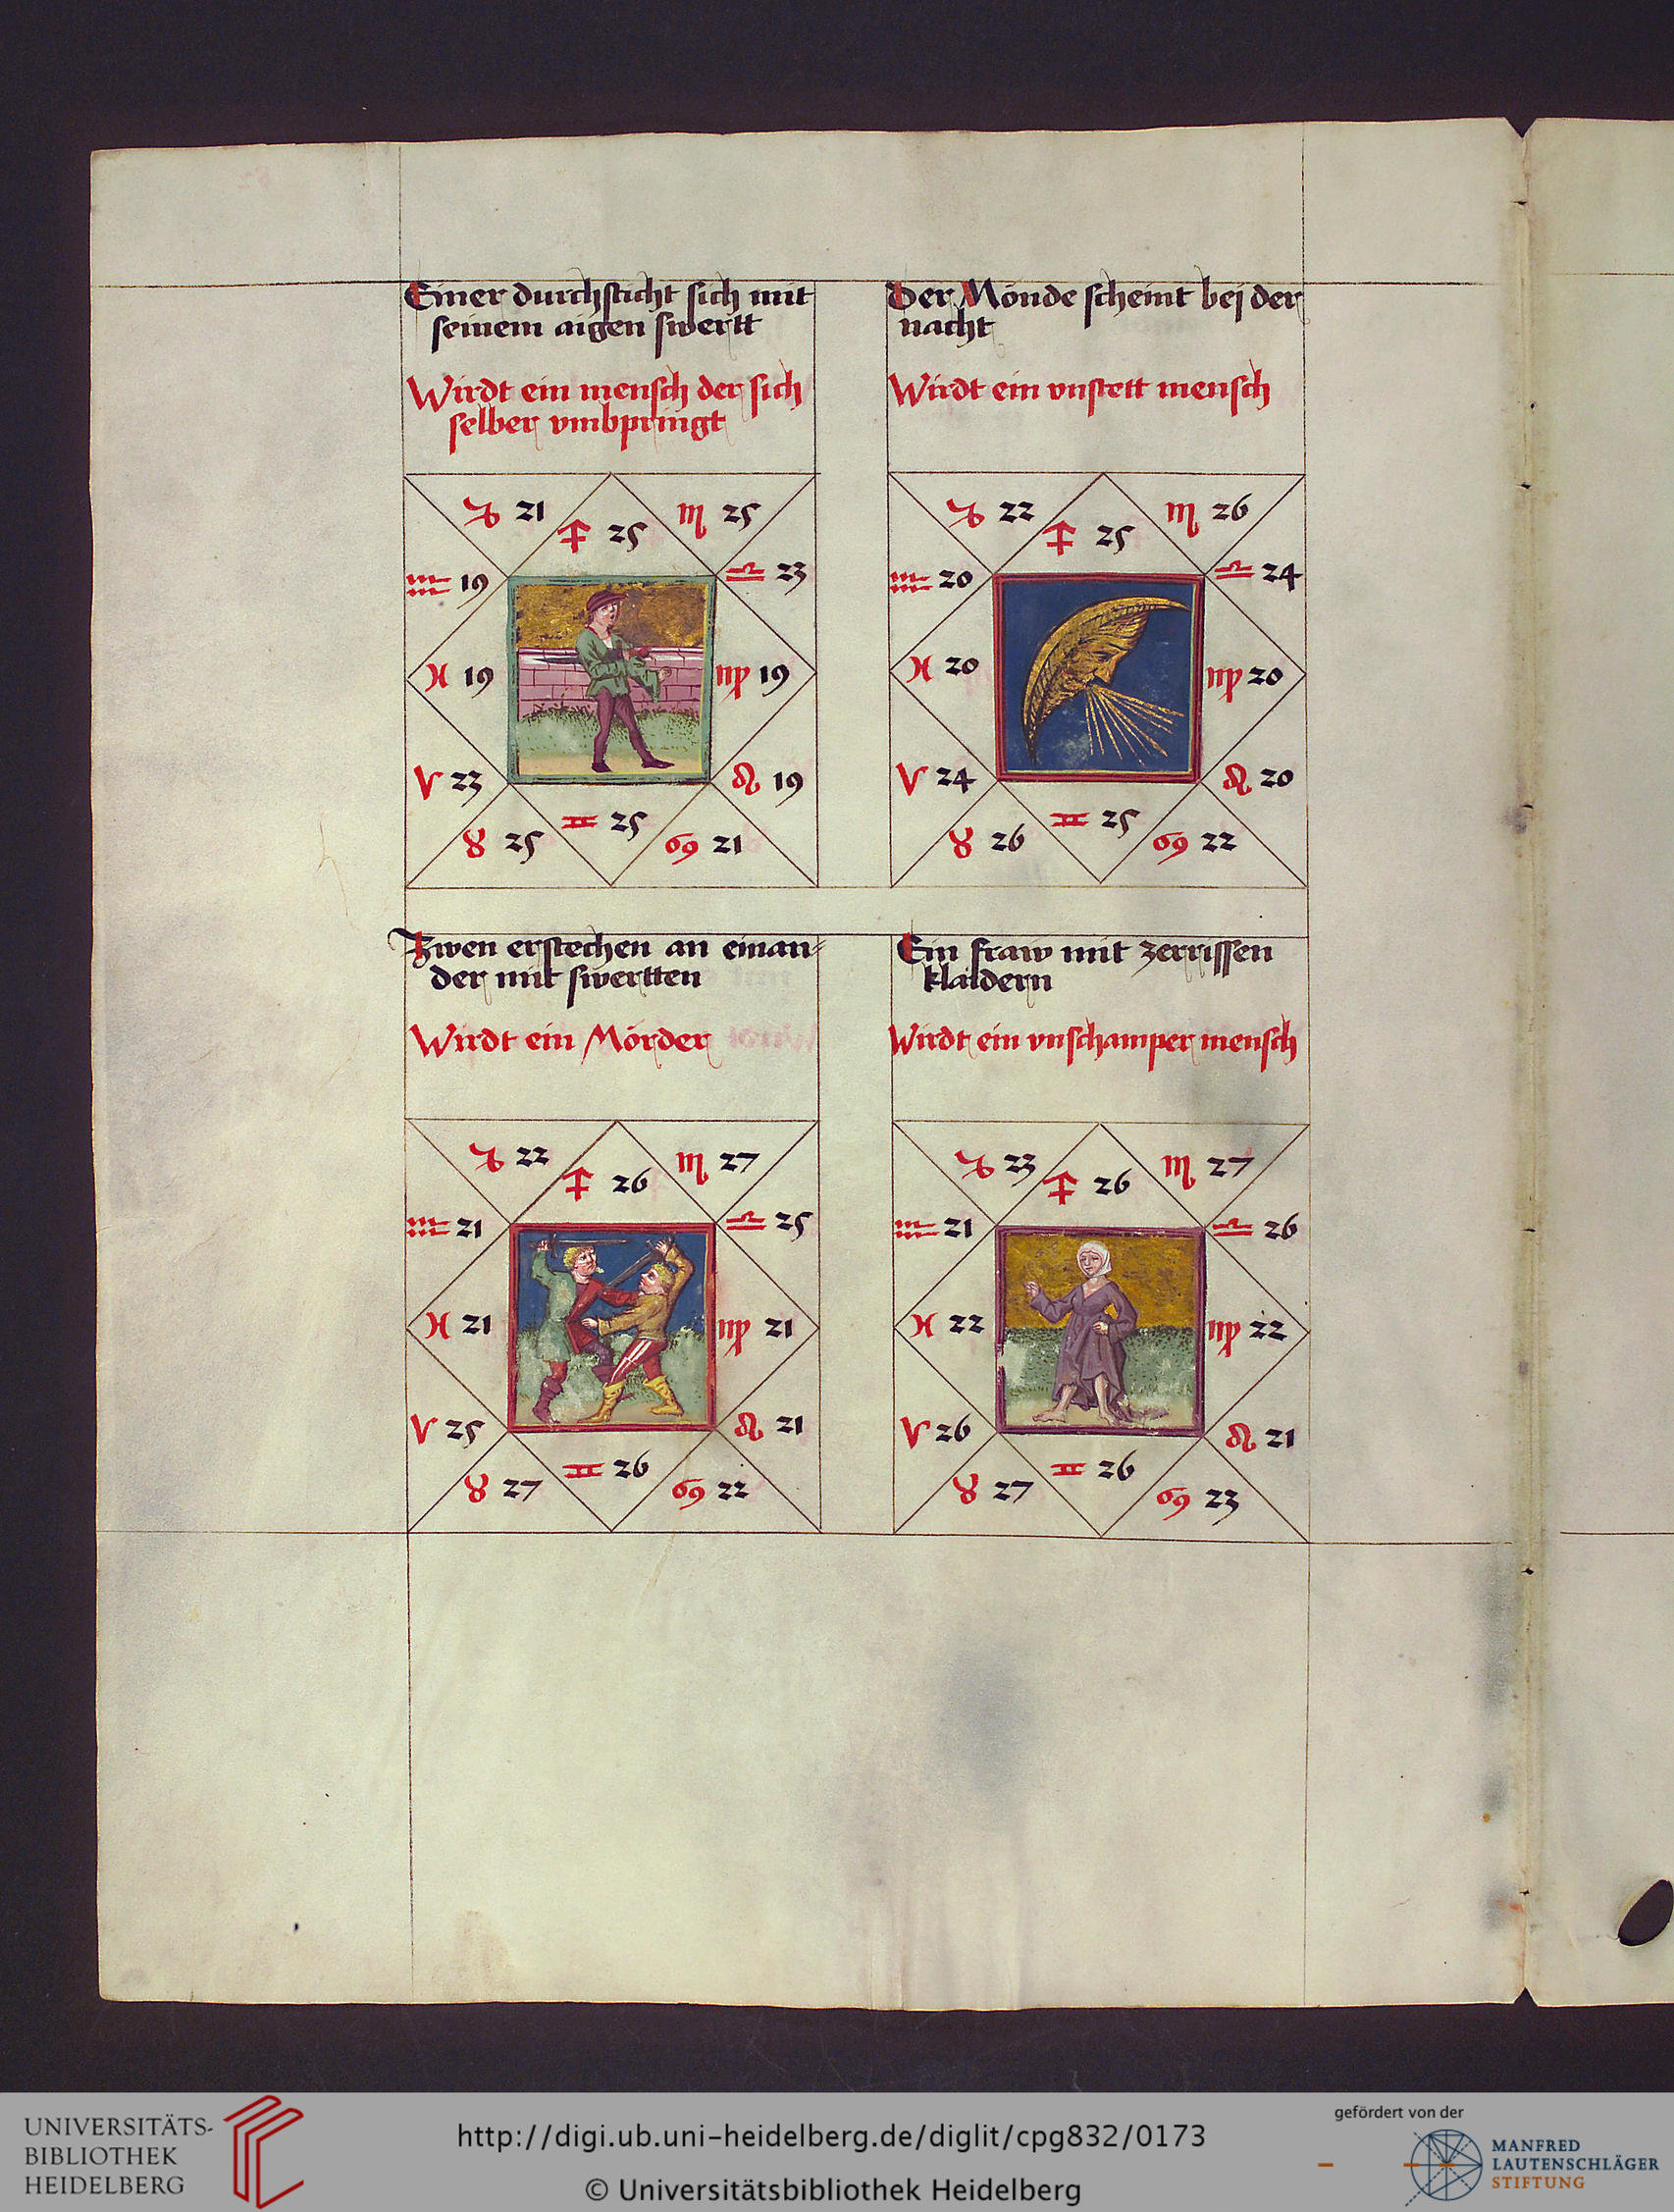 Einer durchsticht sich mit
seinem aigen swertt
Wirdt ein mensch der sich
selber vmbpringt
♑ 21
♐ 25
♏ 25
♒ 19
♎ 23
♓ 19
♍ 19
♈ 23
♌ 19
♉ 25
♊ 25
♋ 21
Der Monde scheint bej der
nacht
Wirdt ein vnstett mensch
♑ 22
♐ 25
♏ 26
♒ 20
♎ 24
♓ 20
♍ 20
♈ 24
♌ 20
♉ 26
♊ 25
♋ 22
Zwen erstechen an einan⸗
der mit swertten
Wirdt ein Mörder
♑ 22
♐ 26
♏ 27
♒ 21
♎ 25
♓ 21
♍ 21
♈ 25
♌ 21
♉ 27
♊ 26
♋ 22
Ein fraw mit zerrissen
klaidern
Wirdt ein vnschamper mensch
♑ 23
♐ 26
♏ 27
♒ 21
♎ 26
♓ 22
♍ 22
♈ 26
♌ 21
♉ 27
♊ 26
♋ 23
UNIVERSITÄTS-
BIBLIOTHEK
HEIDELBERG
http://digi.ub.uni-heidelberg.de/diglit/cpg832/0173
© Universitätsbibliothek Heidelberg
gefördert von der
MANFRED
LAUTENSCHLÄGER
STIFTUNG